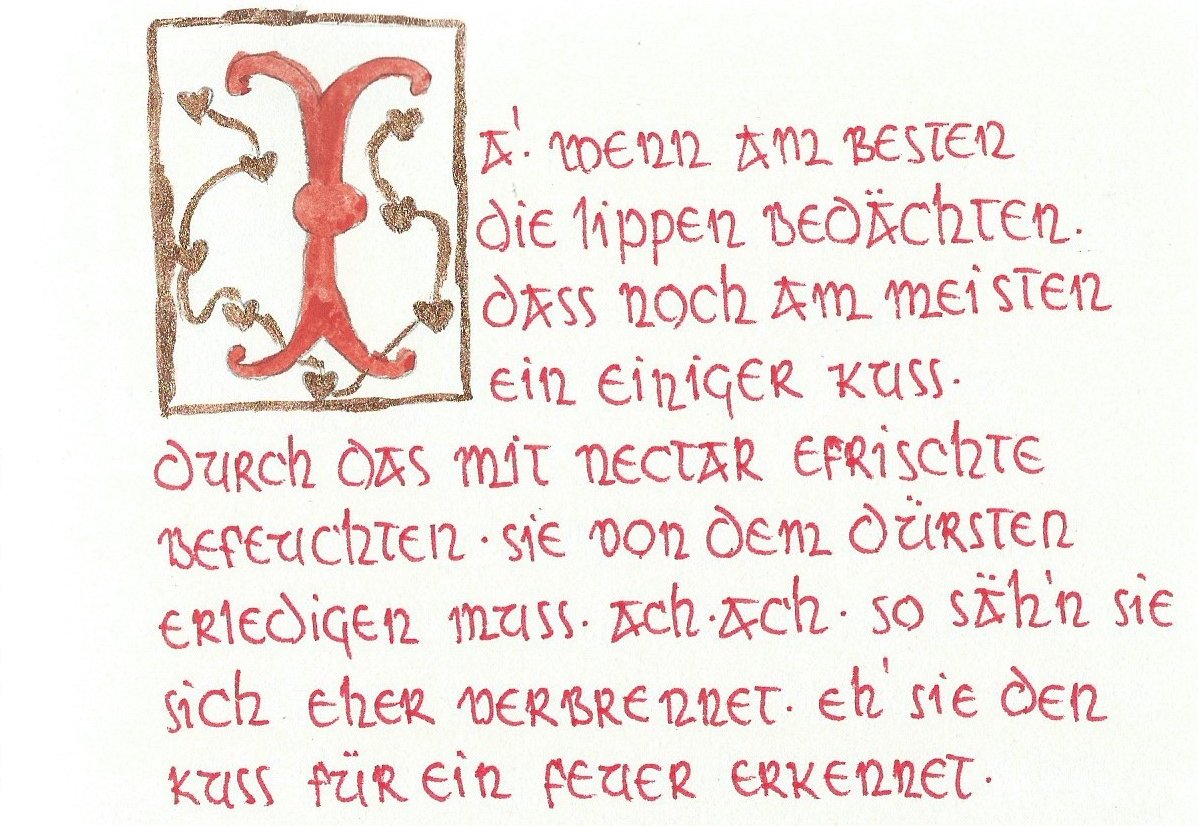 IA'· WENN AM BESTEN
DIE LIPPEN BEDÄCHTEN.
DASS NOCH AM MEISTEN
EIN EINIGER KUSS.
DURCH DAS MIT NECTAR EFRISCHTE
BEFEUCHTEN · SIE VON DEM DÜRSTEN
ERLEDIGEN MUSS. ACH · ACH · SO SÄH'N SIE
SICH EHER VERBRENNET. EH' SIE DEN
KUSS FÜR EIN FEUER ERKENNET.